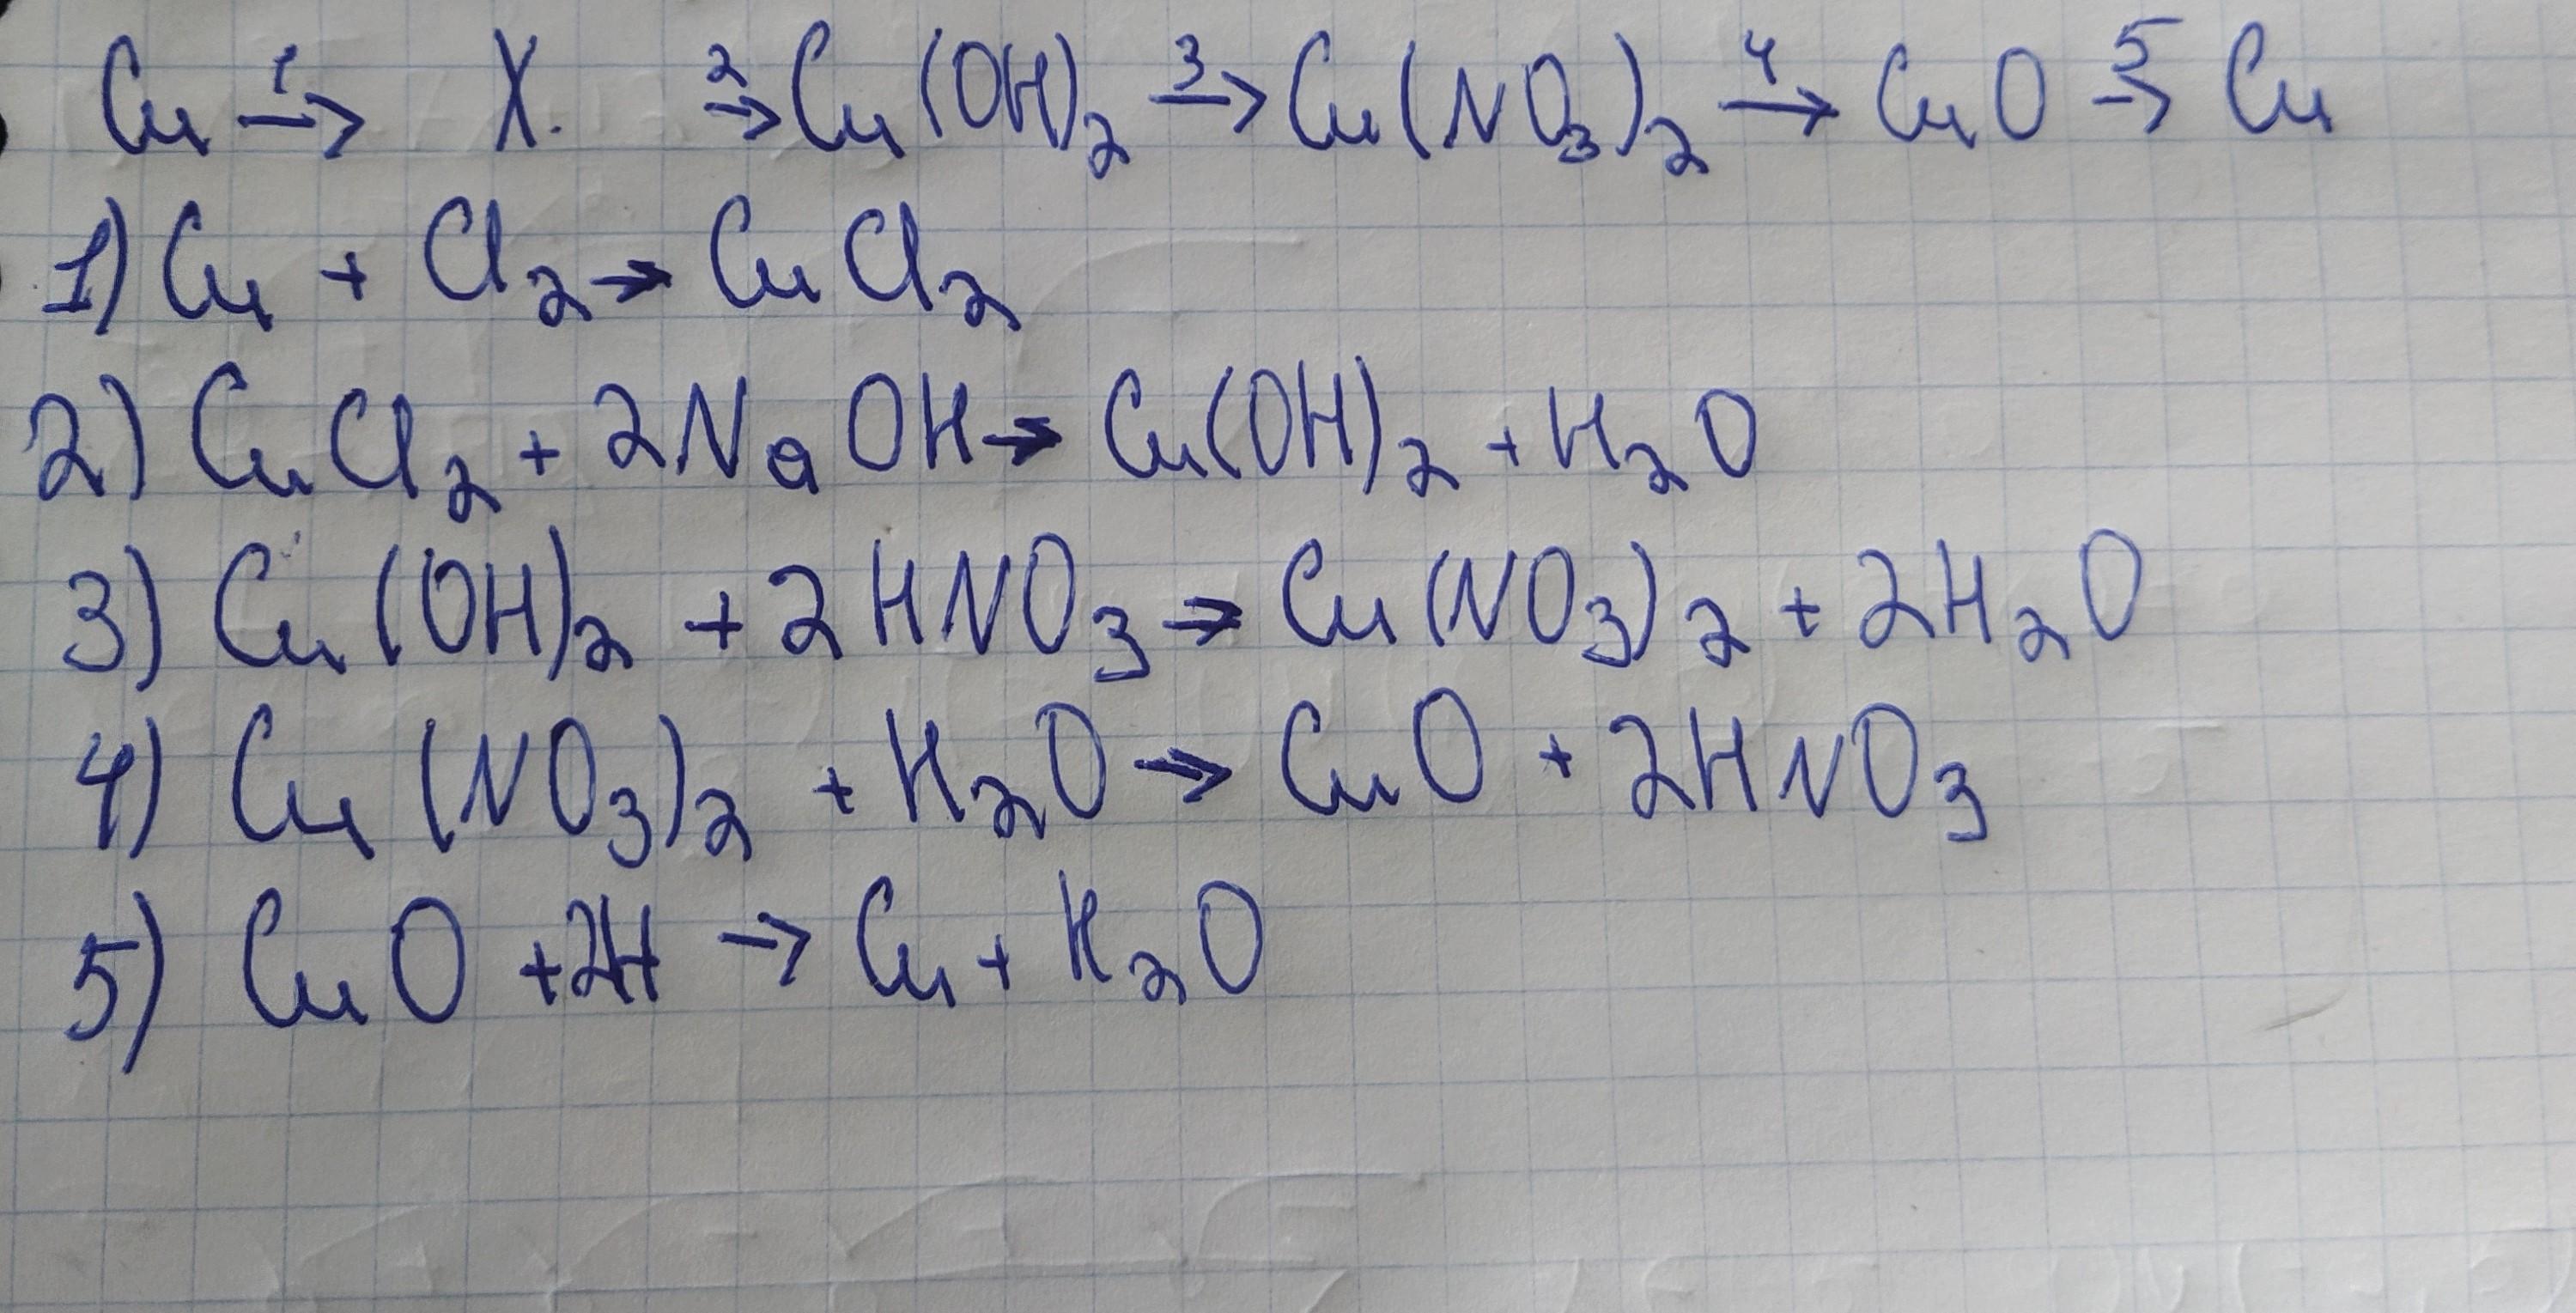 Cu 1→ X. 2→ Cu(OH)2 3→ Cu(NO3)2 4→ CuO 5→ Cu
1) Cu + Cl2 → CuCl2
2) CuCl2 + 2NaOH → Cu(OH)2 + H2O
3) Cu(OH)2 + 2HNO3 → Cu(NO3)2 + 2H2O
4) Cu(NO3)2 + H2O → CuO + 2HNO3
5) CuO + 2H → Cu + H2O